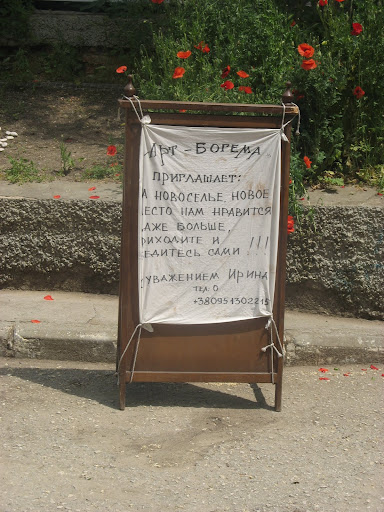 Арт - Борема
приглашает:
А новоселье, новое
есто нам нравится
аже больше,
риходите и
едитесь сами !!!
уважением Ирина
тел. 0
+380951302215